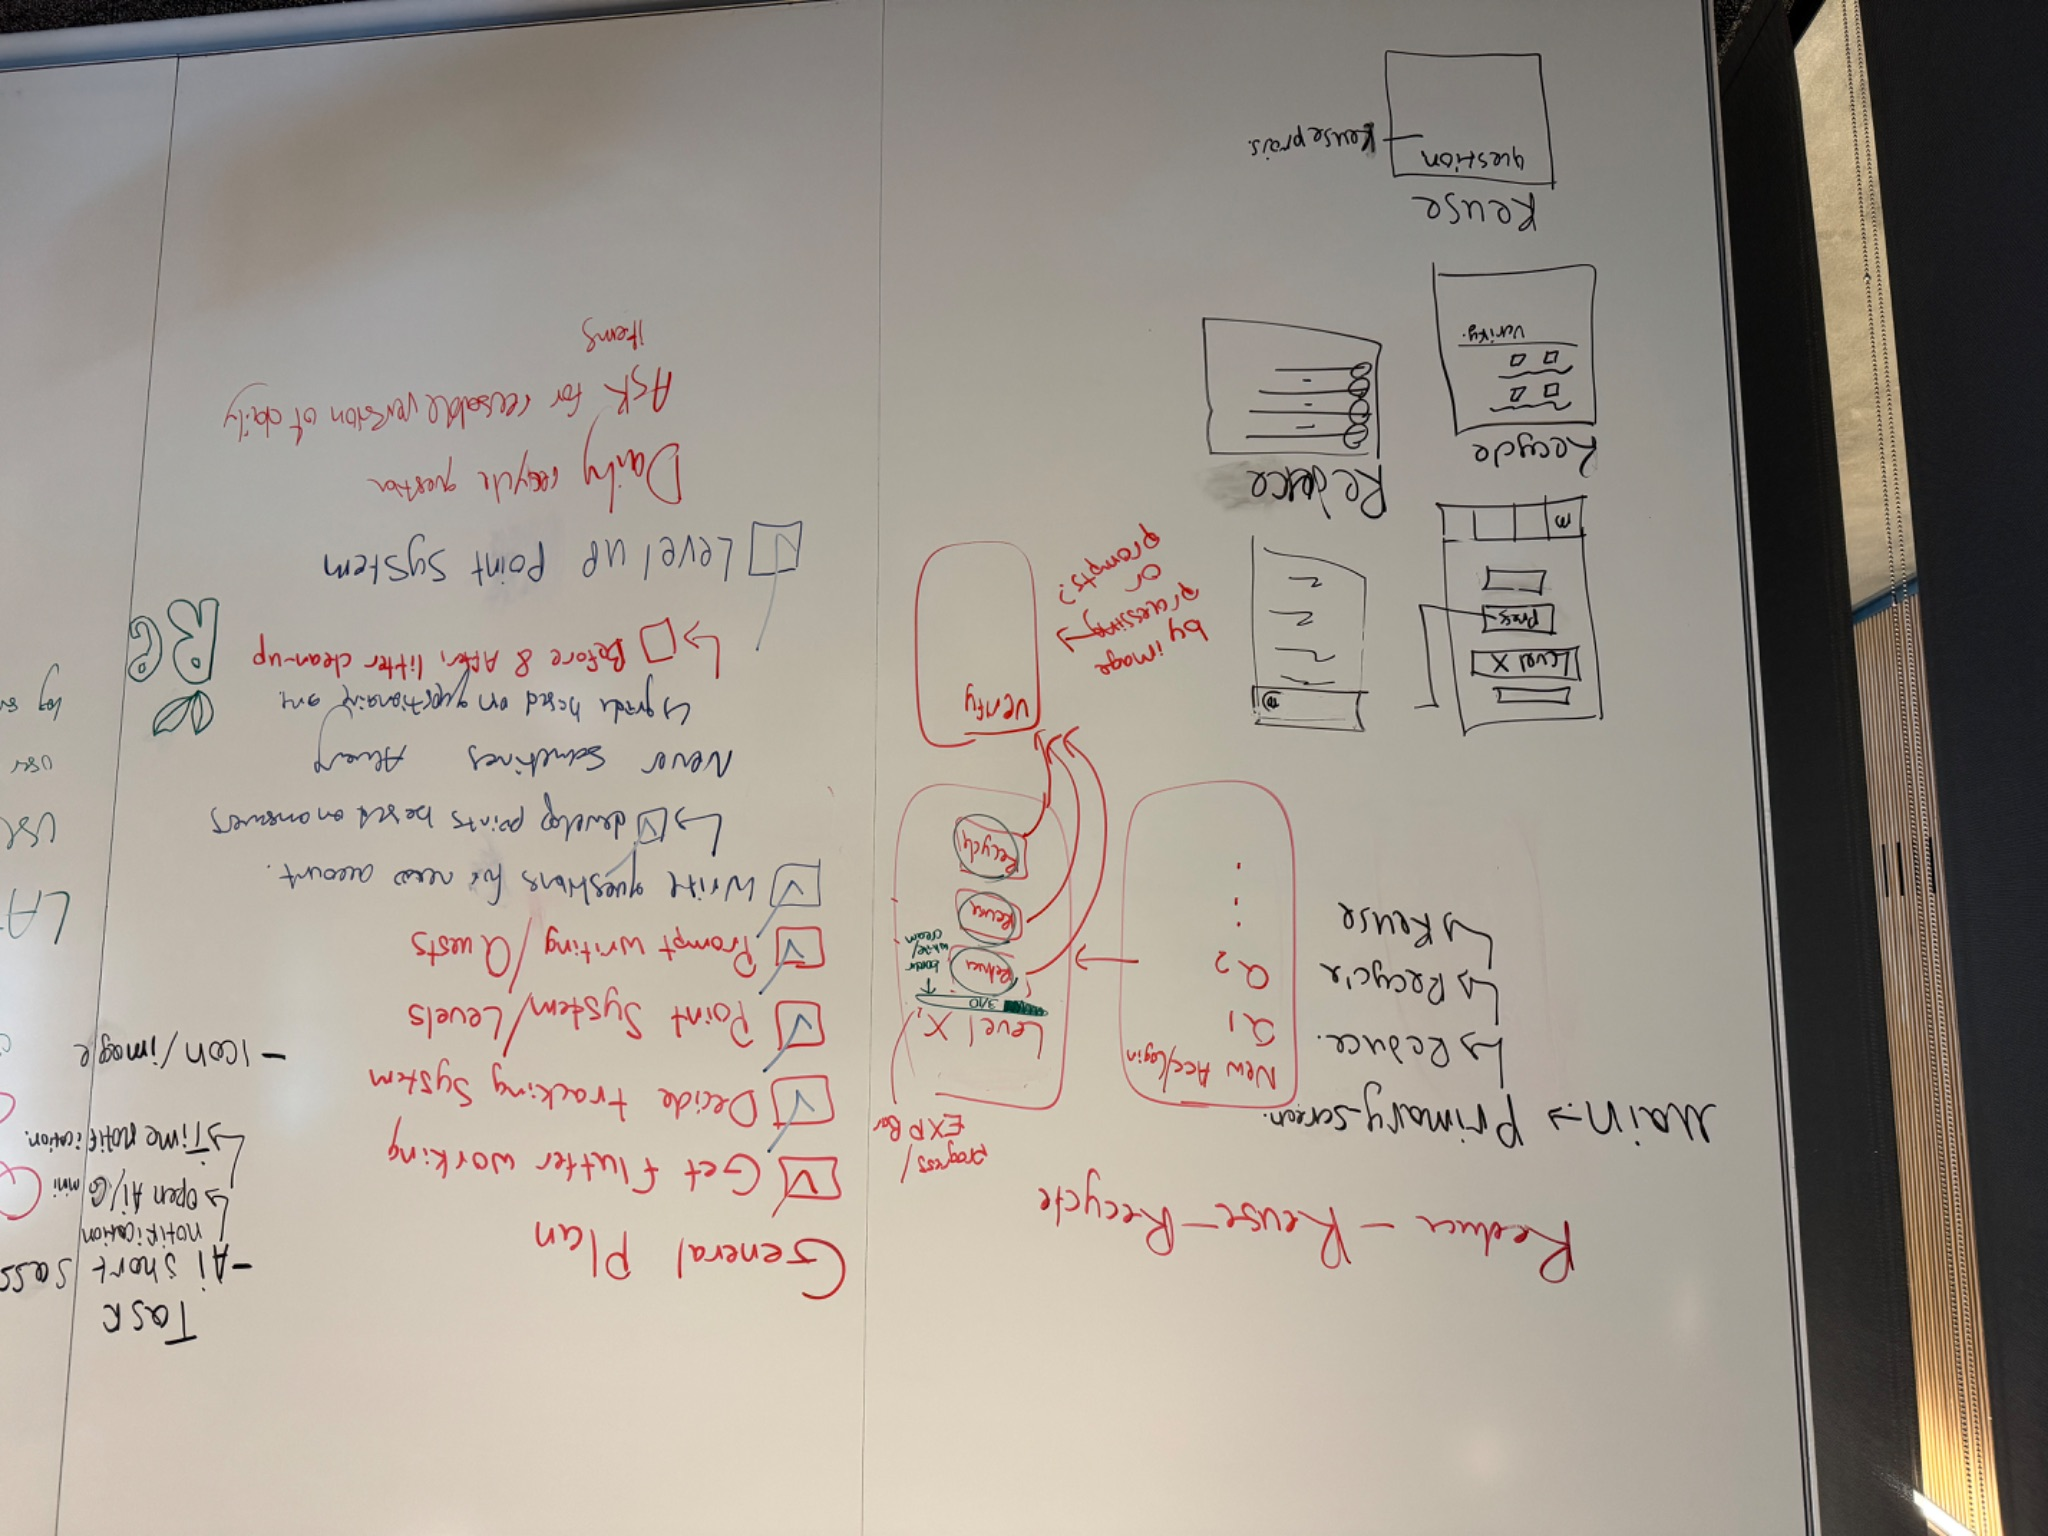 Reduce - Reuse - Recycle
Main → Primary screen.
↳ Reduce.
↳ Recycle
↳ Reuse
New Acc/Login
Q1
Q2
progress/
EXP Bar
Level X
3/10
border
white/
cream
Reduce
Reuse
Recycle
Verify
by image
processing
or
prompts?
Level X
Press
Reduce
Recycle
Verify.
Reuse
question
General Plan
Get Flutter working
Decide tracking System
Point System/Levels
Prompt writing/Quests
Write questions for new account.
↳ develop points based on answers
Never Sometimes Always
↳ grade based on
↳ Before & After, litter clean-up
Level up Point System
Daily recycle question
Ask for reusable version of daily
items
Task
- Ai short Sass
notification
↳ Open Ai/Gmini
↳ Time notification.
- Icon/image
Re
LA
use